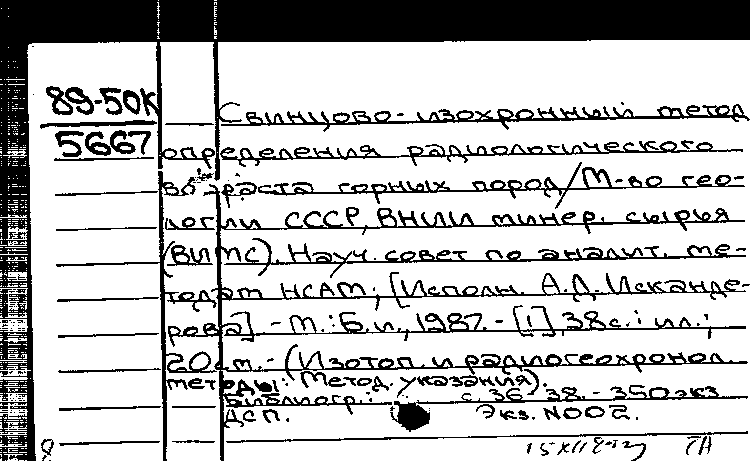 89-50К
5667
Свинцово-изохронный метод
определения радиологического
возраста горных пород/М-во гео-
логии СССР, ВНИИ минер. сырья
(ВИМС). Науч. совет по аналит. ме-
тодам НСАМ; [Исполн. А.Д. Исканде-
рова] - М.: Б.и., 1987. - [1], 38с.: ил.;
20см. - (Изотоп. и радиогеохронол.
методы: Метод. указания).
Библиогр.: с. 36-38. - 350экз
Дсп. Экз. N002.